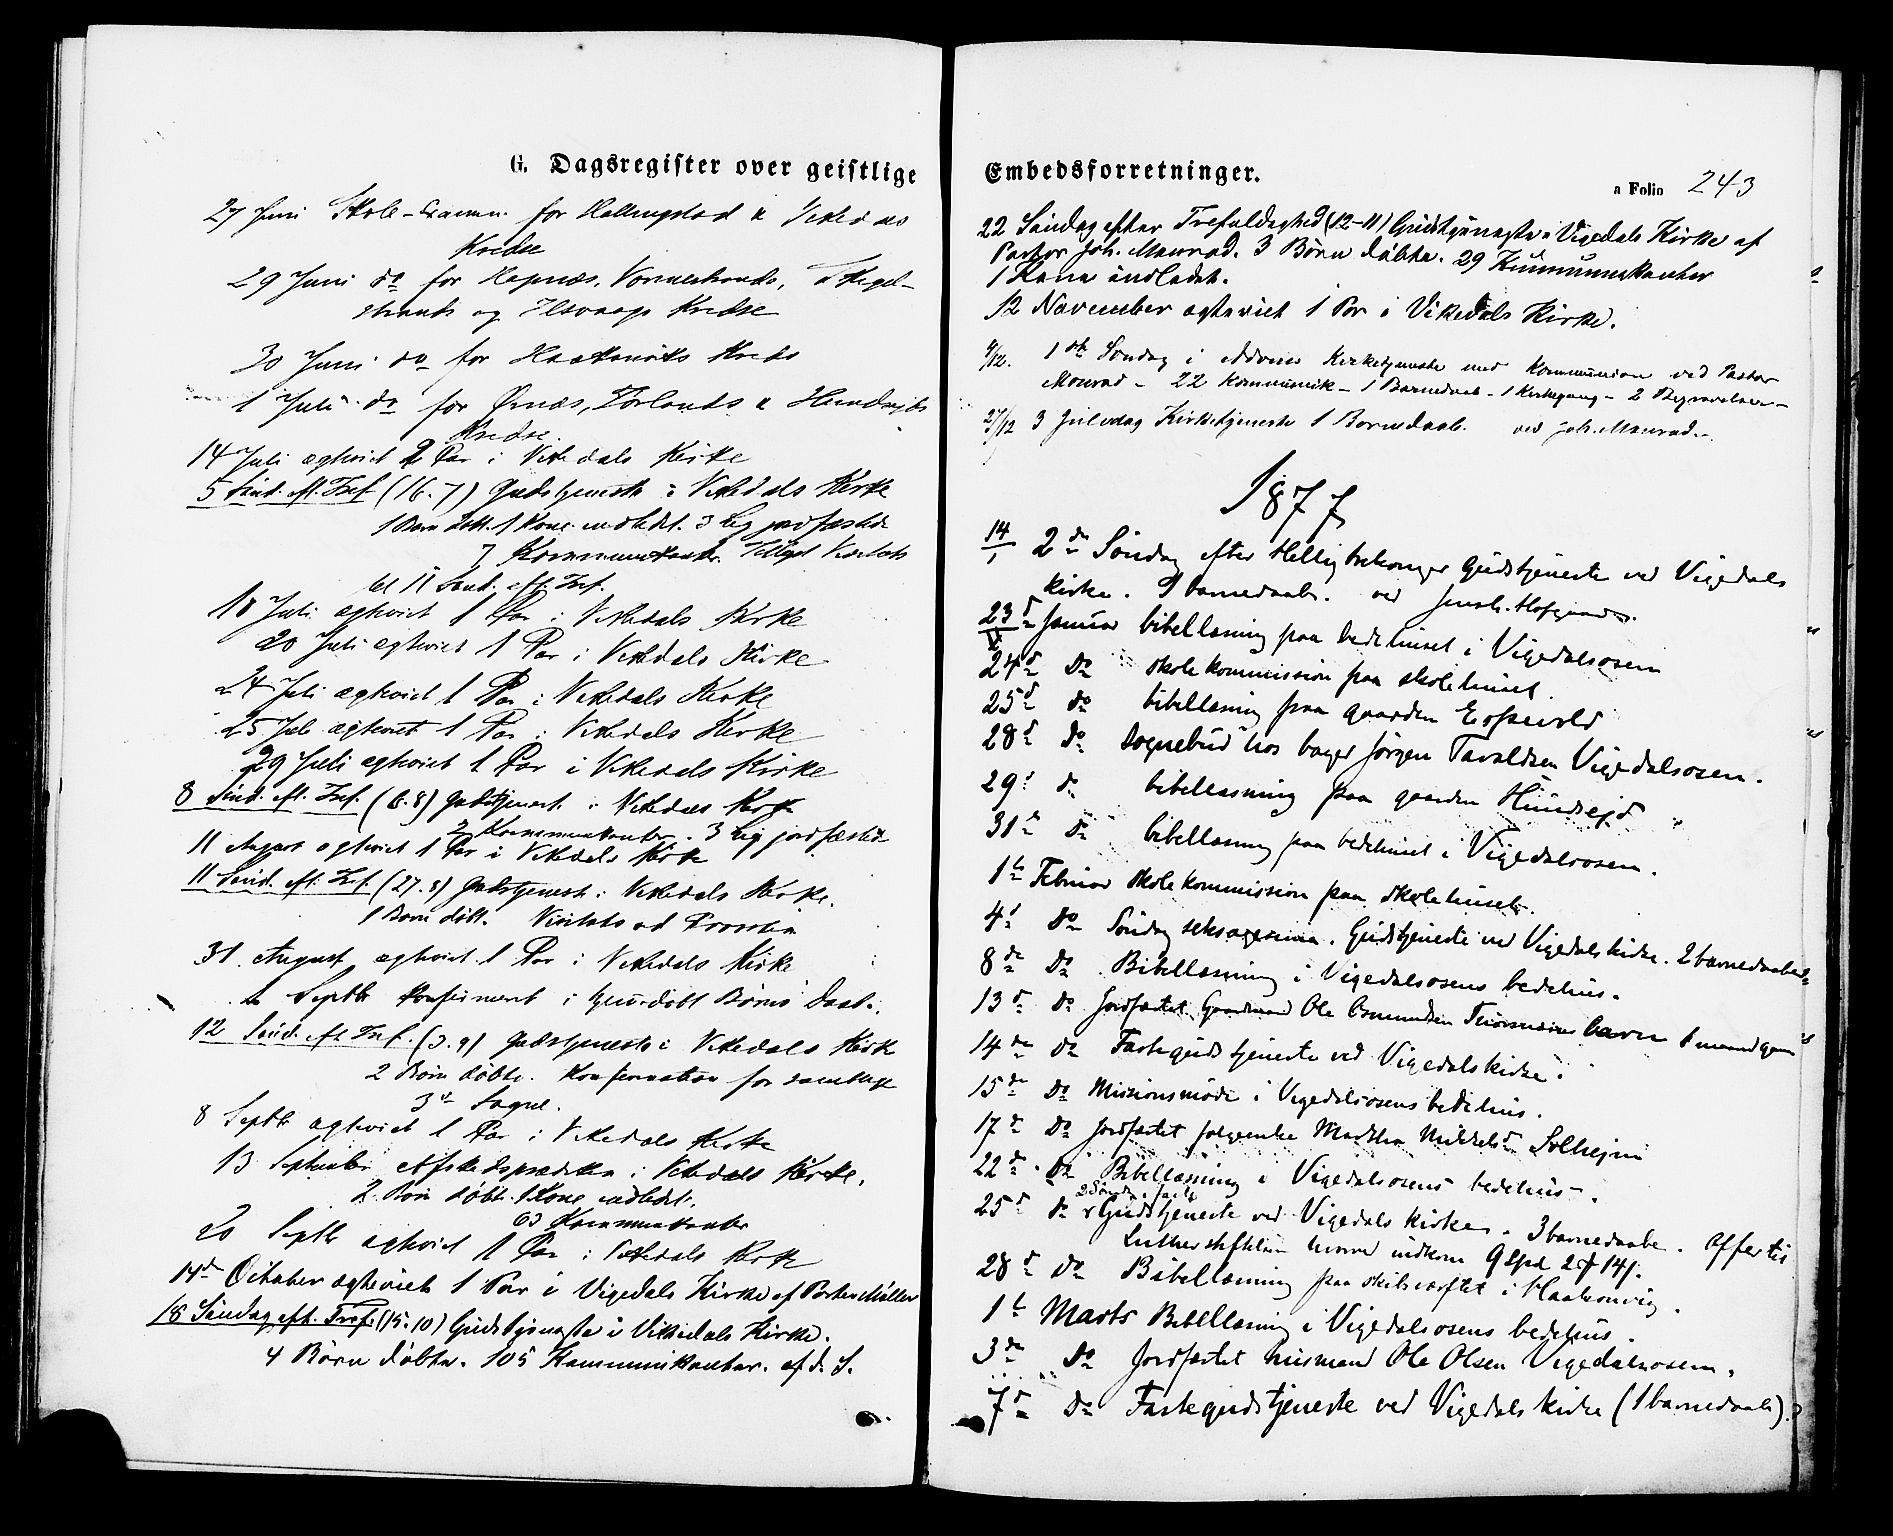 G. Dagsregister over geistlige
27 Juni Skole-Examn. for Hallingstad & Vikedals
Kredse
29 Juni do for Hapnæs, Vormestrands,
strands og Ilsvaags Kredse
30 Juni do for Kreds
1 Juli do for Ørnæs, Førlands &
Kredse.
14 Juli ægteviet 2 Par i Vikedals Kirke
5 Sønd. eft. Tref. (16.7) Gudstjeneste i Vikedals Kirke
1 Barn døbt. 1 Kone indledet. 3 Lig jordfæstede
7 Kommunikanter.
til 11 Sønd. eft. Tref.
18 Juli ægteviet 1 Par i Vikedals Kirke
20 Juli ægteviet 1 Par i Vikedals Kirke
24 Juli ægteviet 1 Par i Vikedals Kirke
25 Juli ægteviet 1 Par i Vikedals Kirke
29 Juli ægteviet 1 Par i Vikedals Kirke
8 Sønd. eft. Tref. (6.8) Gudstjenest. i Vikedals Kirke
7 Kommunikanter. 3 Lig jordfæstede
11 August ægteviet 1 Par i Vikedals Kirke
11 Sønd. eft. Tref. (27.8) Gudstjenest. i Vikedals Kirke.
1 Barn døbt. Visitats ved Provsten
31. August ægteviet 1 Par i Vikedals Kirke
Septbr konfirmeret i
12 Sønd. eft. Tref. (3.9) Gudstjeneste i Vikedals Kirke
2 Børn døbte. Konfirmation for samtlige
3de Sogne.
8 Septbr ægteviet 1 Par i Vikedals Kirke
13 September Afskedsprædiken i Vikedals Kirke.
2 Børn døbt. 1 Kone indledet.
63 Kommunikanter
20 Septbr ægteviet 1 Par i Vikedals Kirke
14de October ægteviet 1 Par i Vigedals Kirke af Pastor Møller
18 Søndag eft. Tref. (15.10) Gudstjeneste i Vikedals Kirke.
4 Børn døbte. 105 Kommunikanter. af d. S.
Embedsforretninger.
a Folio 243
22 Søndag efter Trefoldighed (12-11) Gudstjeneste i Vigedals Kirke af
Pastor Joh. Monrad. 3 Børn døbte. 29 Kummunikanter
1 Kone indledet.
12 November ægteviet 1 Par i Vikedals Kirke.
3/12. 1ste Søndag i Advent Kirketjeneste med Kommunion ved Pastor
Monrad - 22 Kommunik - 1 Barnedaab - 1 Kirkegang - 2 Begravelser -
27/12 3 Juledag Kirketjeneste 1 Barnedaab. ved Joh. Monrad.
1877
14/1 2den Søndag efter Helligtrekonger Gudstjeneste ved Vigedals
kirke. 9 barnedaab. ved
23d Januar bibellæsning paa bedehuset i Vigedalsosen
24d Do skolekommission paa skolehuset.
25d do bibellæsning paa gaarden Espevold
28d Do Sognebud hos bager Jørgen Tavaldsen Vigedalsosen.
29d do bibellæsning paa gaarden Hundsejd
31d do bibellæsning paa bedehuset i Vigedalsosen.
1te Februar skolekommission paa skolehuset.
4d Do Søndag seksagesima. Gudstjeneste ved Vigedals kirke. 2 barnedaabe
8de Do Bibellæsning i Vigedalsosens bedehus.
13d Do Jordfæstet Gaardmand Ole Osmundsen barn 1 maand gam
14de Do Fastegudstjeneste ved Vigedals kirke.
15de Do Missionsmøde i Vigedalsosens bedehus.
17d Do Jordfæstet Martha Mikkelsd. Solhejm
22de Do Bibellæsning i Vigedalsosens bedehus.
2 Søndag i faste
25d do Gudstjeneste ved Vigedals kirke. 3 barnedaabe. Offer til
Lutherstiftelsen hvorved indkom 9 Spd 2 14 s.
28d Do Bibellæsning paa skibsværftet i Haakonvig.
1te Marts Bibellæsning i Vigedalsosens bedehus.
3de Do Jordfæstet husmand Ole Olsen Vigedalsosen.
7d Do Fastegudstjeneste ved Vigedals kirke (1 barnedaab).